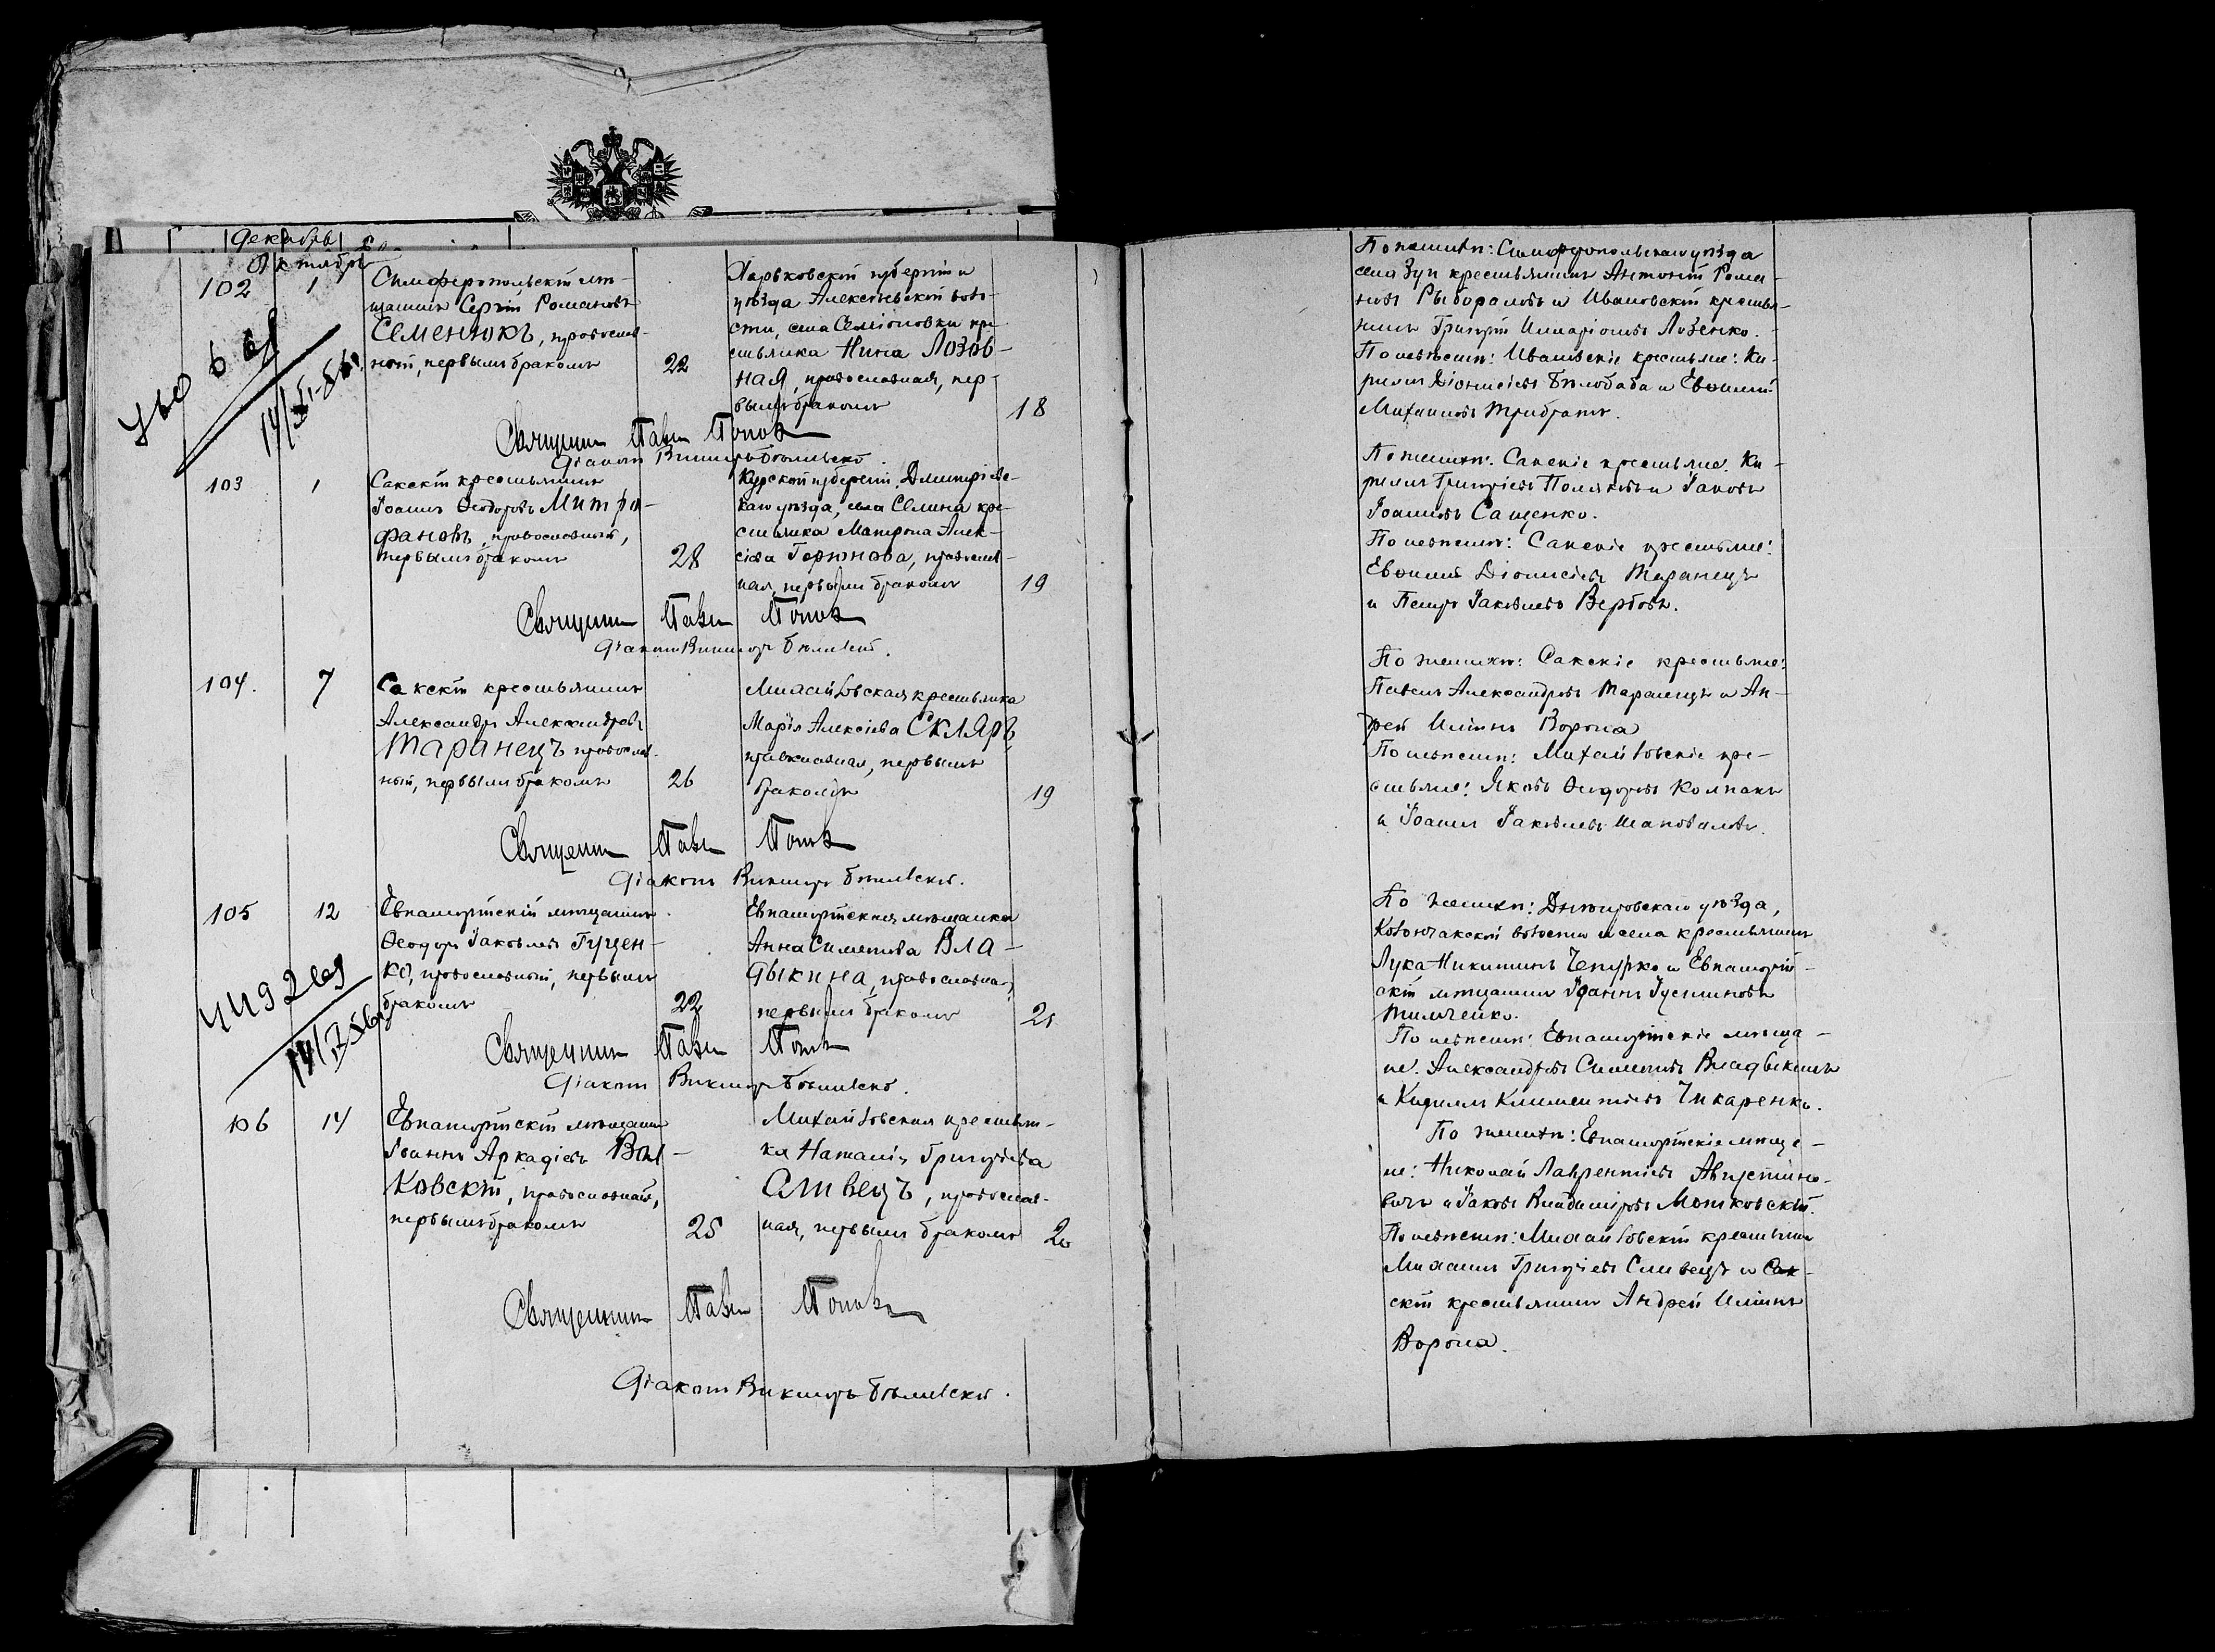 Декабрь
Октябрь
102
1
Симферопольскій мѣ-
щанинъ Сергій Романовъ
Семенюкъ, православ-
ный, первымъ бракомъ
22
Харьковской губерніи и
уѣзда Алексѣевской воло-
сти, села Семіоновки кре-
стьянка Нина Лозов-
ная, православная, пер-
вымъ бракомъ
18
Священникъ Павелъ Поповъ
Діаконъ Викторъ Бѣлявскій.
103
1
Сакскій крестьянинъ
Іоаннъ Ѳеодоровъ Митро-
фановъ, православный,
первымъ бракомъ
28
Курской губерніи, Дмитріев-
скаго уѣзда, села Селина кре-
стьянка Матрона Алек-
сіева Горюнова, православ-
ная, первымъ бракомъ
19
Священникъ Павелъ Поповъ
Діаконъ Викторъ Бѣлявскій.
104.
7
Сакскій крестьянинъ
Александръ Александровъ
Таранецъ православ-
ный, первымъ бракомъ
26
Михайловская крестьянка
Марія Алексіева Скляръ
православная, первымъ
бракомъ
19
Священникъ Павелъ Поповъ
Діаконъ Викторъ Бѣлявскій.
105
12
Евпаторійскій мѣщанинъ
Ѳеодоръ Іаковлевъ Гуцен-
ко, православный, первымъ
бракомъ
22
Евпаторійская мѣщанка
Анна Симеонова Вла-
дыкина, православная,
первымъ бракомъ
21
Священникъ Павелъ Поповъ
Діаконъ Викторъ Бѣлявскій.
106
14
Евпаторійскій мѣщанинъ
Іоаннъ Аркадіевъ
ковскій, православный,
первымъ бракомъ
25
Михайловская крестьян-
ка Наталія Григоріева
Сливецъ, православ-
ная, первымъ бракомъ
20
Священникъ Павелъ Поповъ
Діаконъ Викторъ Бѣлявскій.
По женихѣ: Симферопольскаго уѣзда
села Зуи крестьянинъ Антоній Рома-
новъ и Ивановскій крестья-
нинъ Григорій Иларіоновъ Лозенко.
По невѣстѣ: Ивановскіе крестьяне: Ки-
риллъ Діонисіевъ Бѣлобаба и Евѳимій
Михаиловъ Трибратъ.
По женихѣ: Сакскіе крестьяне: Ки-
риллъ Григоріевъ Поляковъ и Іаковъ
Іоанновъ Сащенко.
По невѣстѣ: Сакскіе крестьяне:
Евѳимій Діонисіевъ Таранецъ
и Петръ Іаковлевъ Вербовъ.
По женихѣ: Сакскіе крестьяне:
Павелъ Александровъ Таранецъ и Ан-
дрей Иліинъ Ворона
По невѣстѣ: Михайловскіе кре-
стьяне: Яковъ Ѳеодоровъ Колпакъ
и Іоаннъ Іаковлевъ Шаповаловъ.
По женихѣ: Днѣпровскаго уѣзда,
волости и села крестьянинъ
Лука Никитинъ Чепурко и Евпаторій-
скій мѣщанинъ Іоаннъ Іустиновъ
Тимченко.
По невѣстѣ: Евпаторійскіе мѣща-
не: Александръ Симеоновъ Владыкинъ
и Кириллъ Климентіевъ Чикаренко.
По женихѣ: Евпаторійскіе мѣща-
не: Николай Лаврентіевъ Августино-
вичъ и Іаковъ Владиміровъ Мошковскій.
По невѣстѣ: Михайловскій крестьянинъ
Михаилъ Григоріевъ Сливецъ и Сак-
скій крестьянинъ Андрей Иліинъ
Ворона.